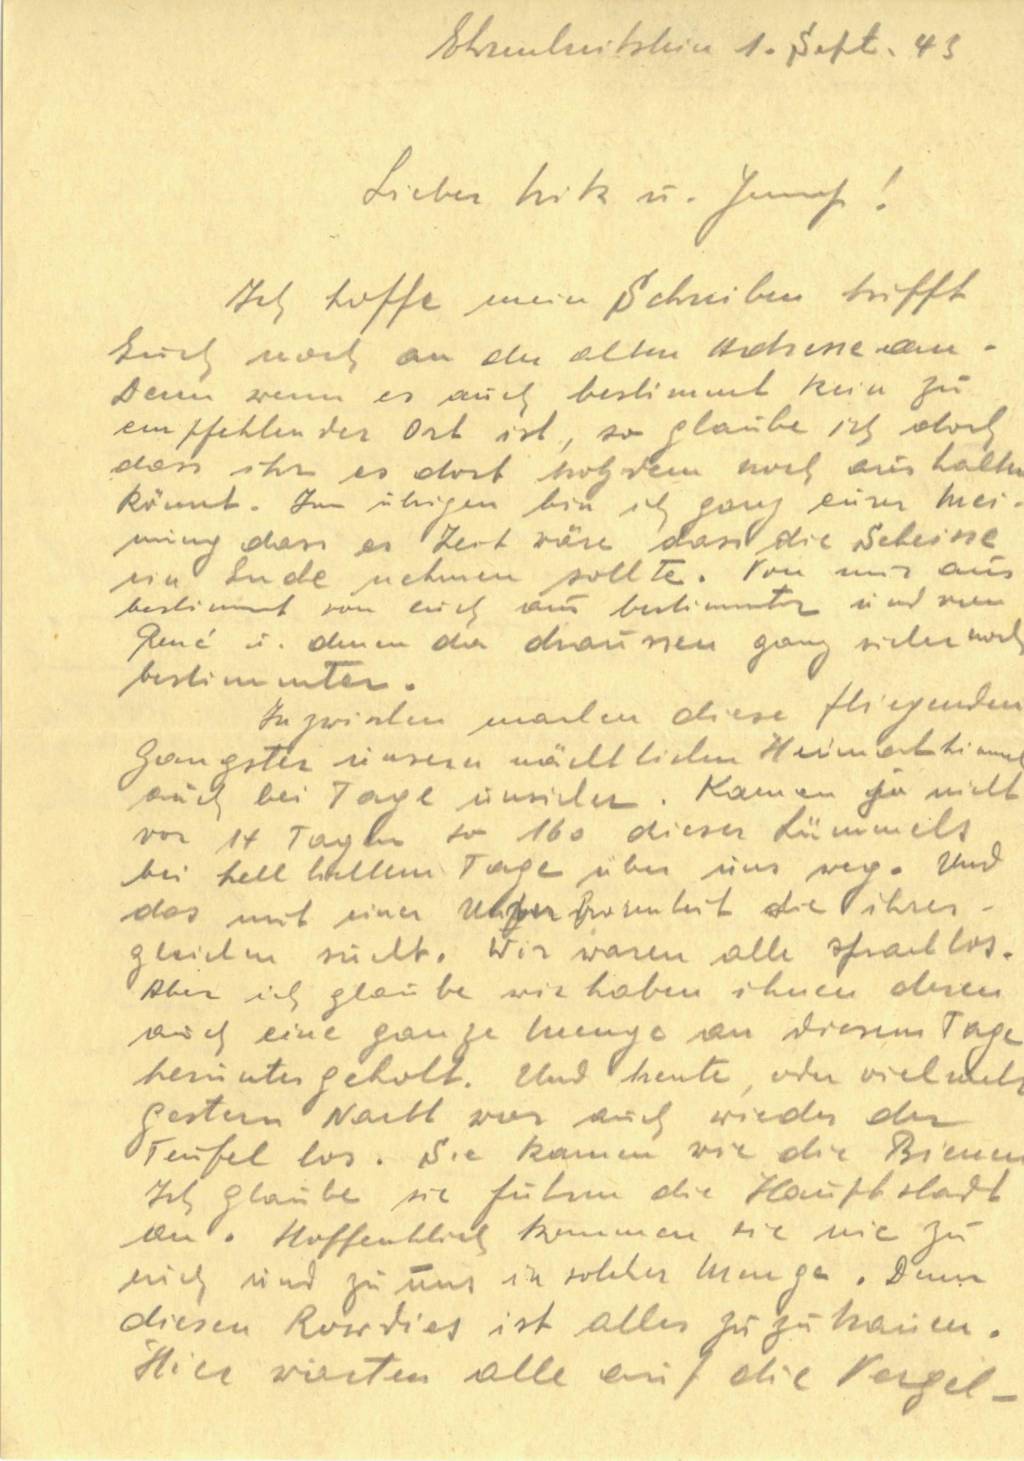 Ehrenbreitstein 1. Sept. 43
Lieber Fritz u.
Ich hoffe mein Schreiben trifft
Euch noch an der alten Adresse an.
Denn wenn es auch bestimmt kein zu
empfehlender Ort ist, so glaube ich doch
dass ihr es dort trotzdem noch aushalten
könnt. Im übrigen bin ich ganz eurer Mei-
nung dass es Zeit wäre dass die Scheisse
ein Ende nehmen sollte. Von mir aus
bestimmt von euch aus bestimmter und von
René u. denen da draussen ganz sicher noch
bestimmter.
Inzwischen machen diese fliegenden
Gangster unsern nächtlichen Heimathimmel
auch bei Tage unsicher. Kamen ja nicht
vor 14 Tagen so 160 dieser Lümmels
bei hell hellem Tage über uns weg. Und
das mit einer Unverfrorenheit die ihres-
gleichen sucht. Wir waren alle sprachlos.
Aber ich glaube wir haben ihnen deren
auch eine ganze Menge an diesem Tage
heruntergeholt. Und heute, oder vielmehr
gestern Nacht war auch wieder der
Teufel los. Sie kamen wie die Bienen
Ich glaube sie fuhren die Hauptstadt
an. Hoffentlich kommen sie nie zu
euch und zu uns in solcher Menge. Denn
diesen Rowdies ist alles zuzutrauen.
Hier warten alle auf die Vergel-